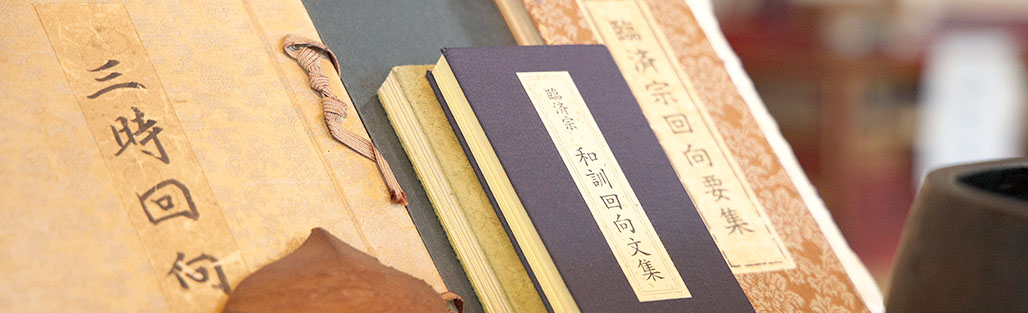 三時回向
臨済宗 和訓回向文集
臨済宗回向要集